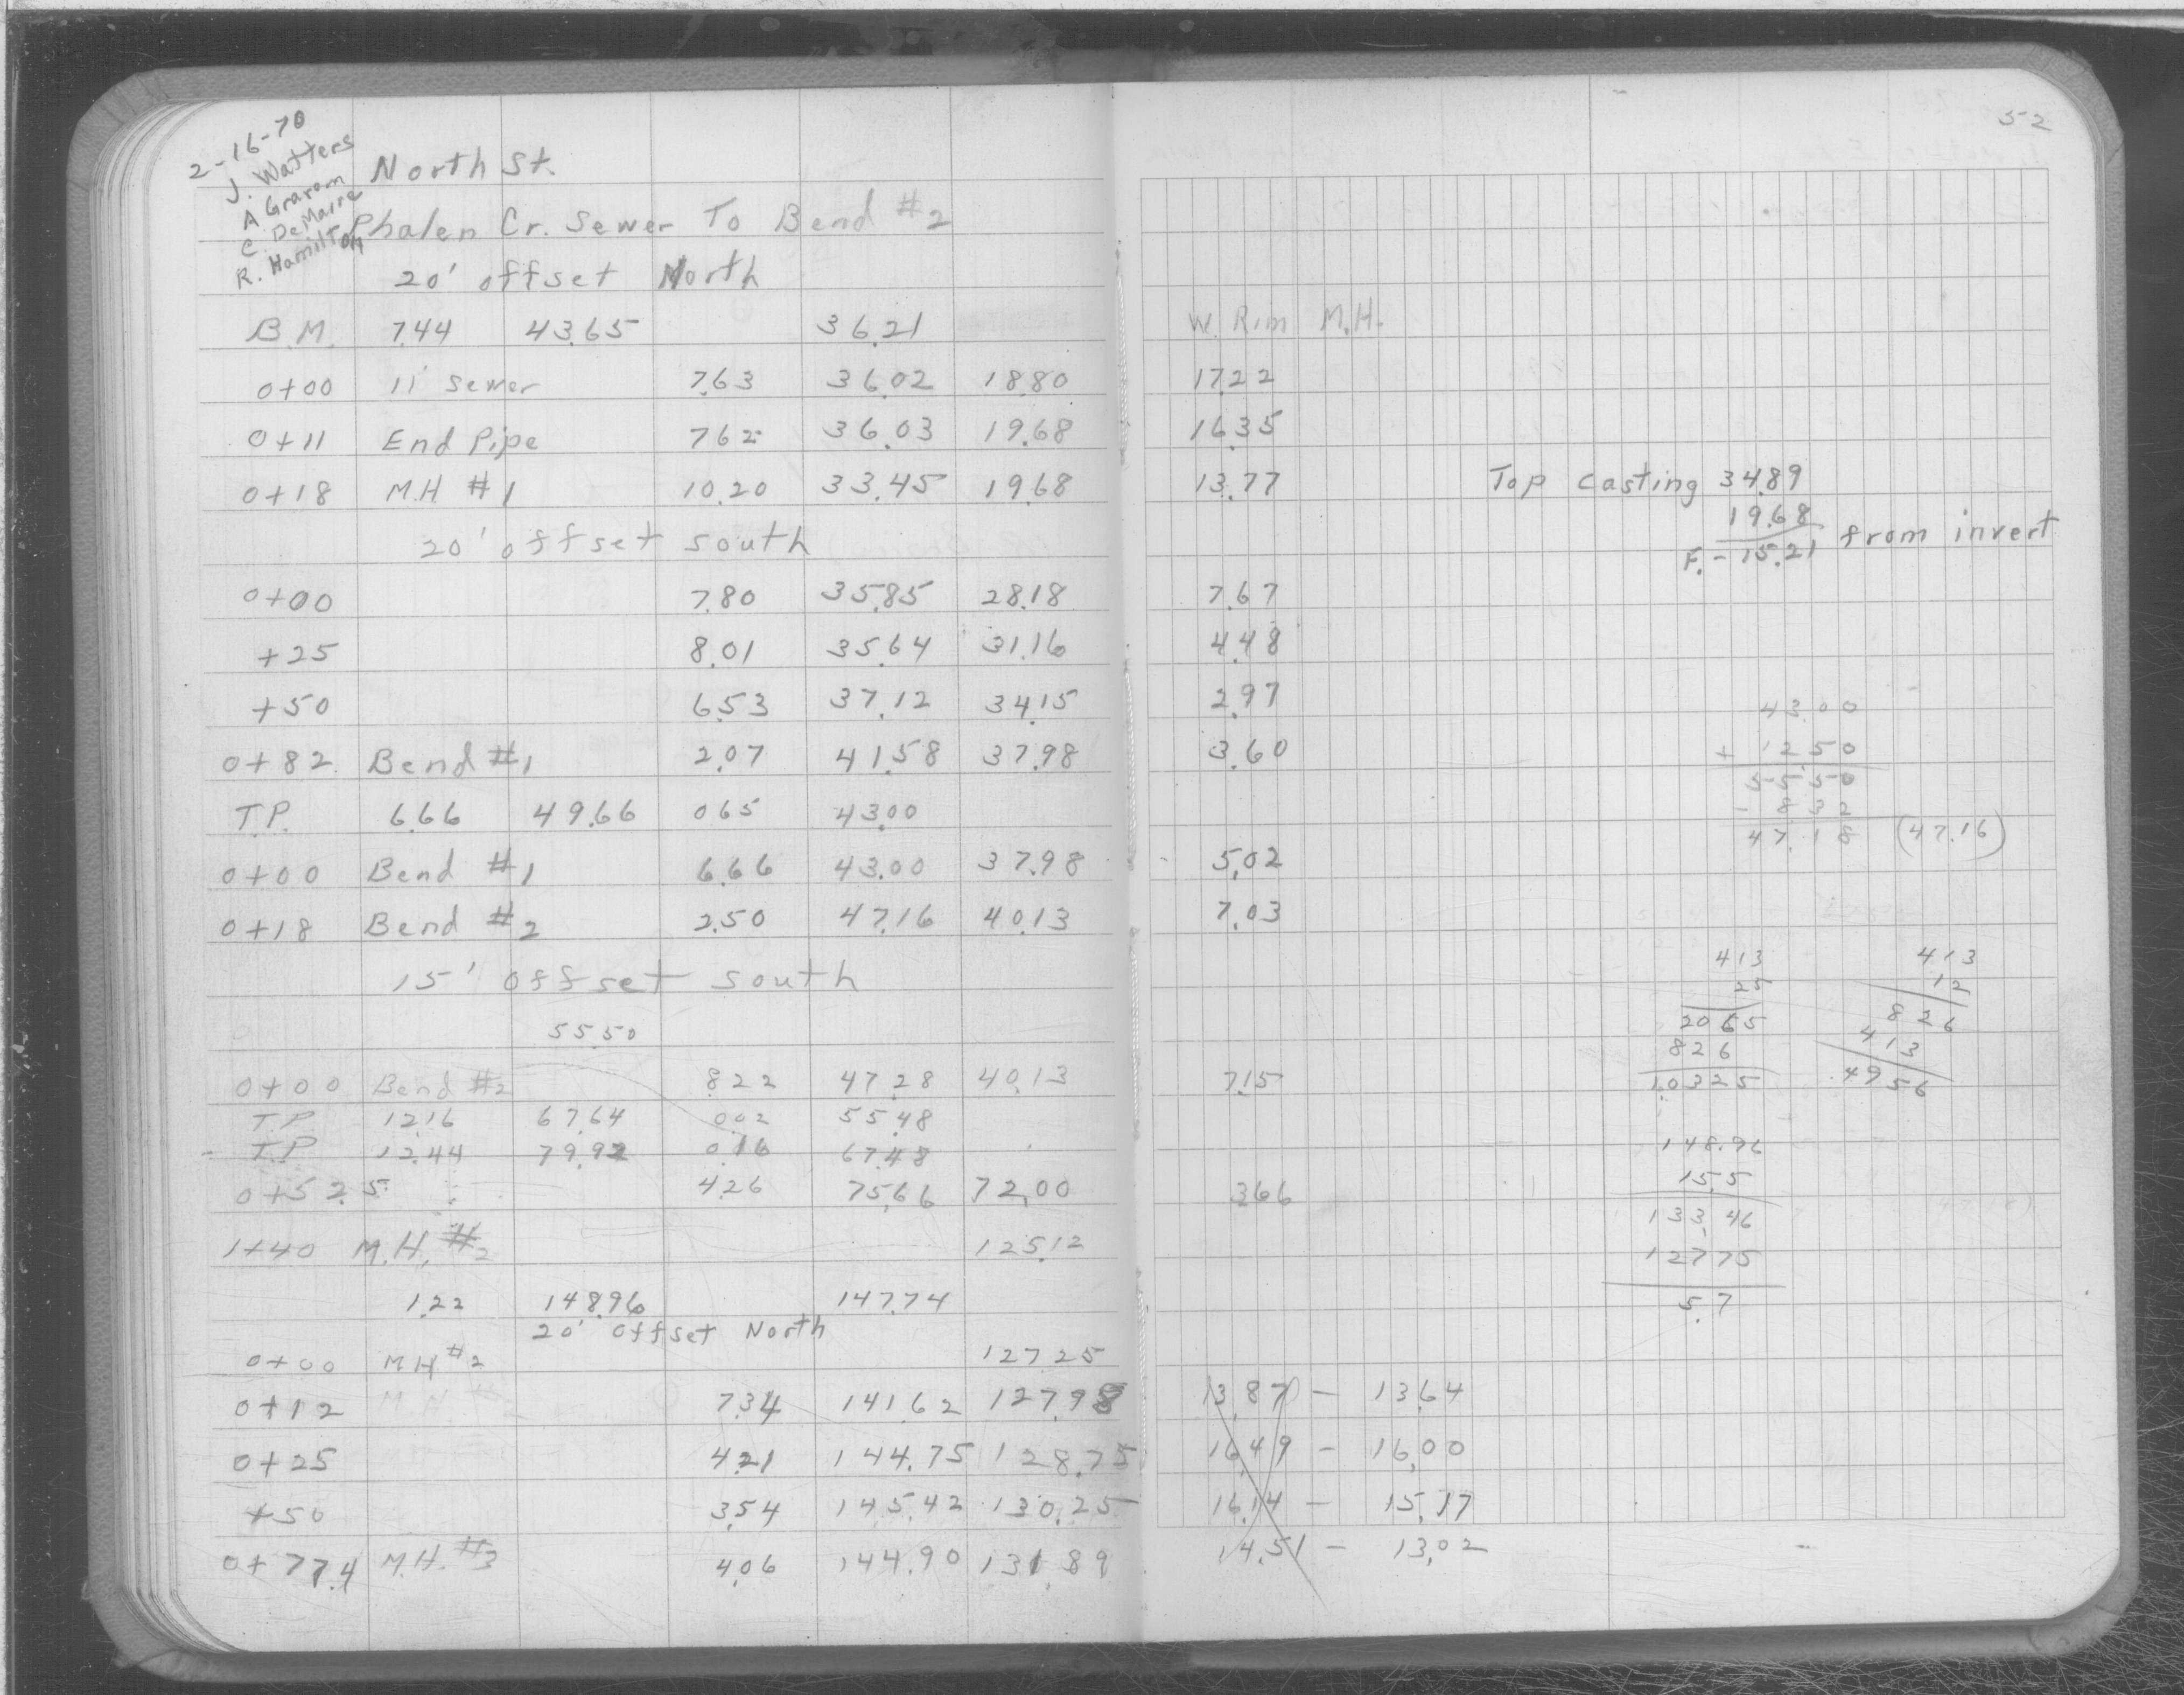 2-16-70
J. Watters
A Graram
C. DeMaire
R. Hamilton
North St.
Phalen Cr. Sewer To Bend #2
20' offset North
B.M. 7.44 43.65 36.21
0+00 11' sewer 7.63 36.02 18.80
0+11 End Pipe 7.62 36.03 19.68
0+18 M.H #1 10.20 33.45 19.68
20' offset south
0+00 7.80 35.85 28.18
+25 8.01 35.64 31.16
+50 6.53 37.12 34.15
0+82 Bend #1 2.07 41.58 37.98
T.P. 6.66 49.66 0.65 43.00
0+00 Bend #1 6.66 43.00 37.98
0+18 Bend #2 2.50 47.16 40.13
15' offset south
55.50
0+00 Bend #2 8.22 47.28 40.13
T.P. 12.16 67.64 0.02 55.48
T.P 12.44 79.92 0.16 67.48
0+52.5 4.26 75.66 72.00
1+40 M.H. #2 125.12
1.22 148.96 147.74
20' offset North
0+00 M H #2 127.25
0+12 M H #2 7.34 141.62 127.98
0+25 4.21 144.75 128.75
+50 3.54 145.42 130.25
0+77.4 M.H. #3 4.06 144.90 131.89
52
W. Rim M.H.
17.22
16.35
13.77 Top casting 34.89
19.68
F. - 15.21 from invert
7.67
4.48
2.97
3.60
5.02
7.03
7.15
3.66
43.00
+ 12.50
55.50
- 8.32
47.18 (47.16)
413
25
2065
826
1.0325
413
12
826
413
.4956
148.96
15.5
133.46
127.75
5.7
13.87 - 13.64
16.49 - 16.00
16.14 - 15.17
14.51 - 13.02